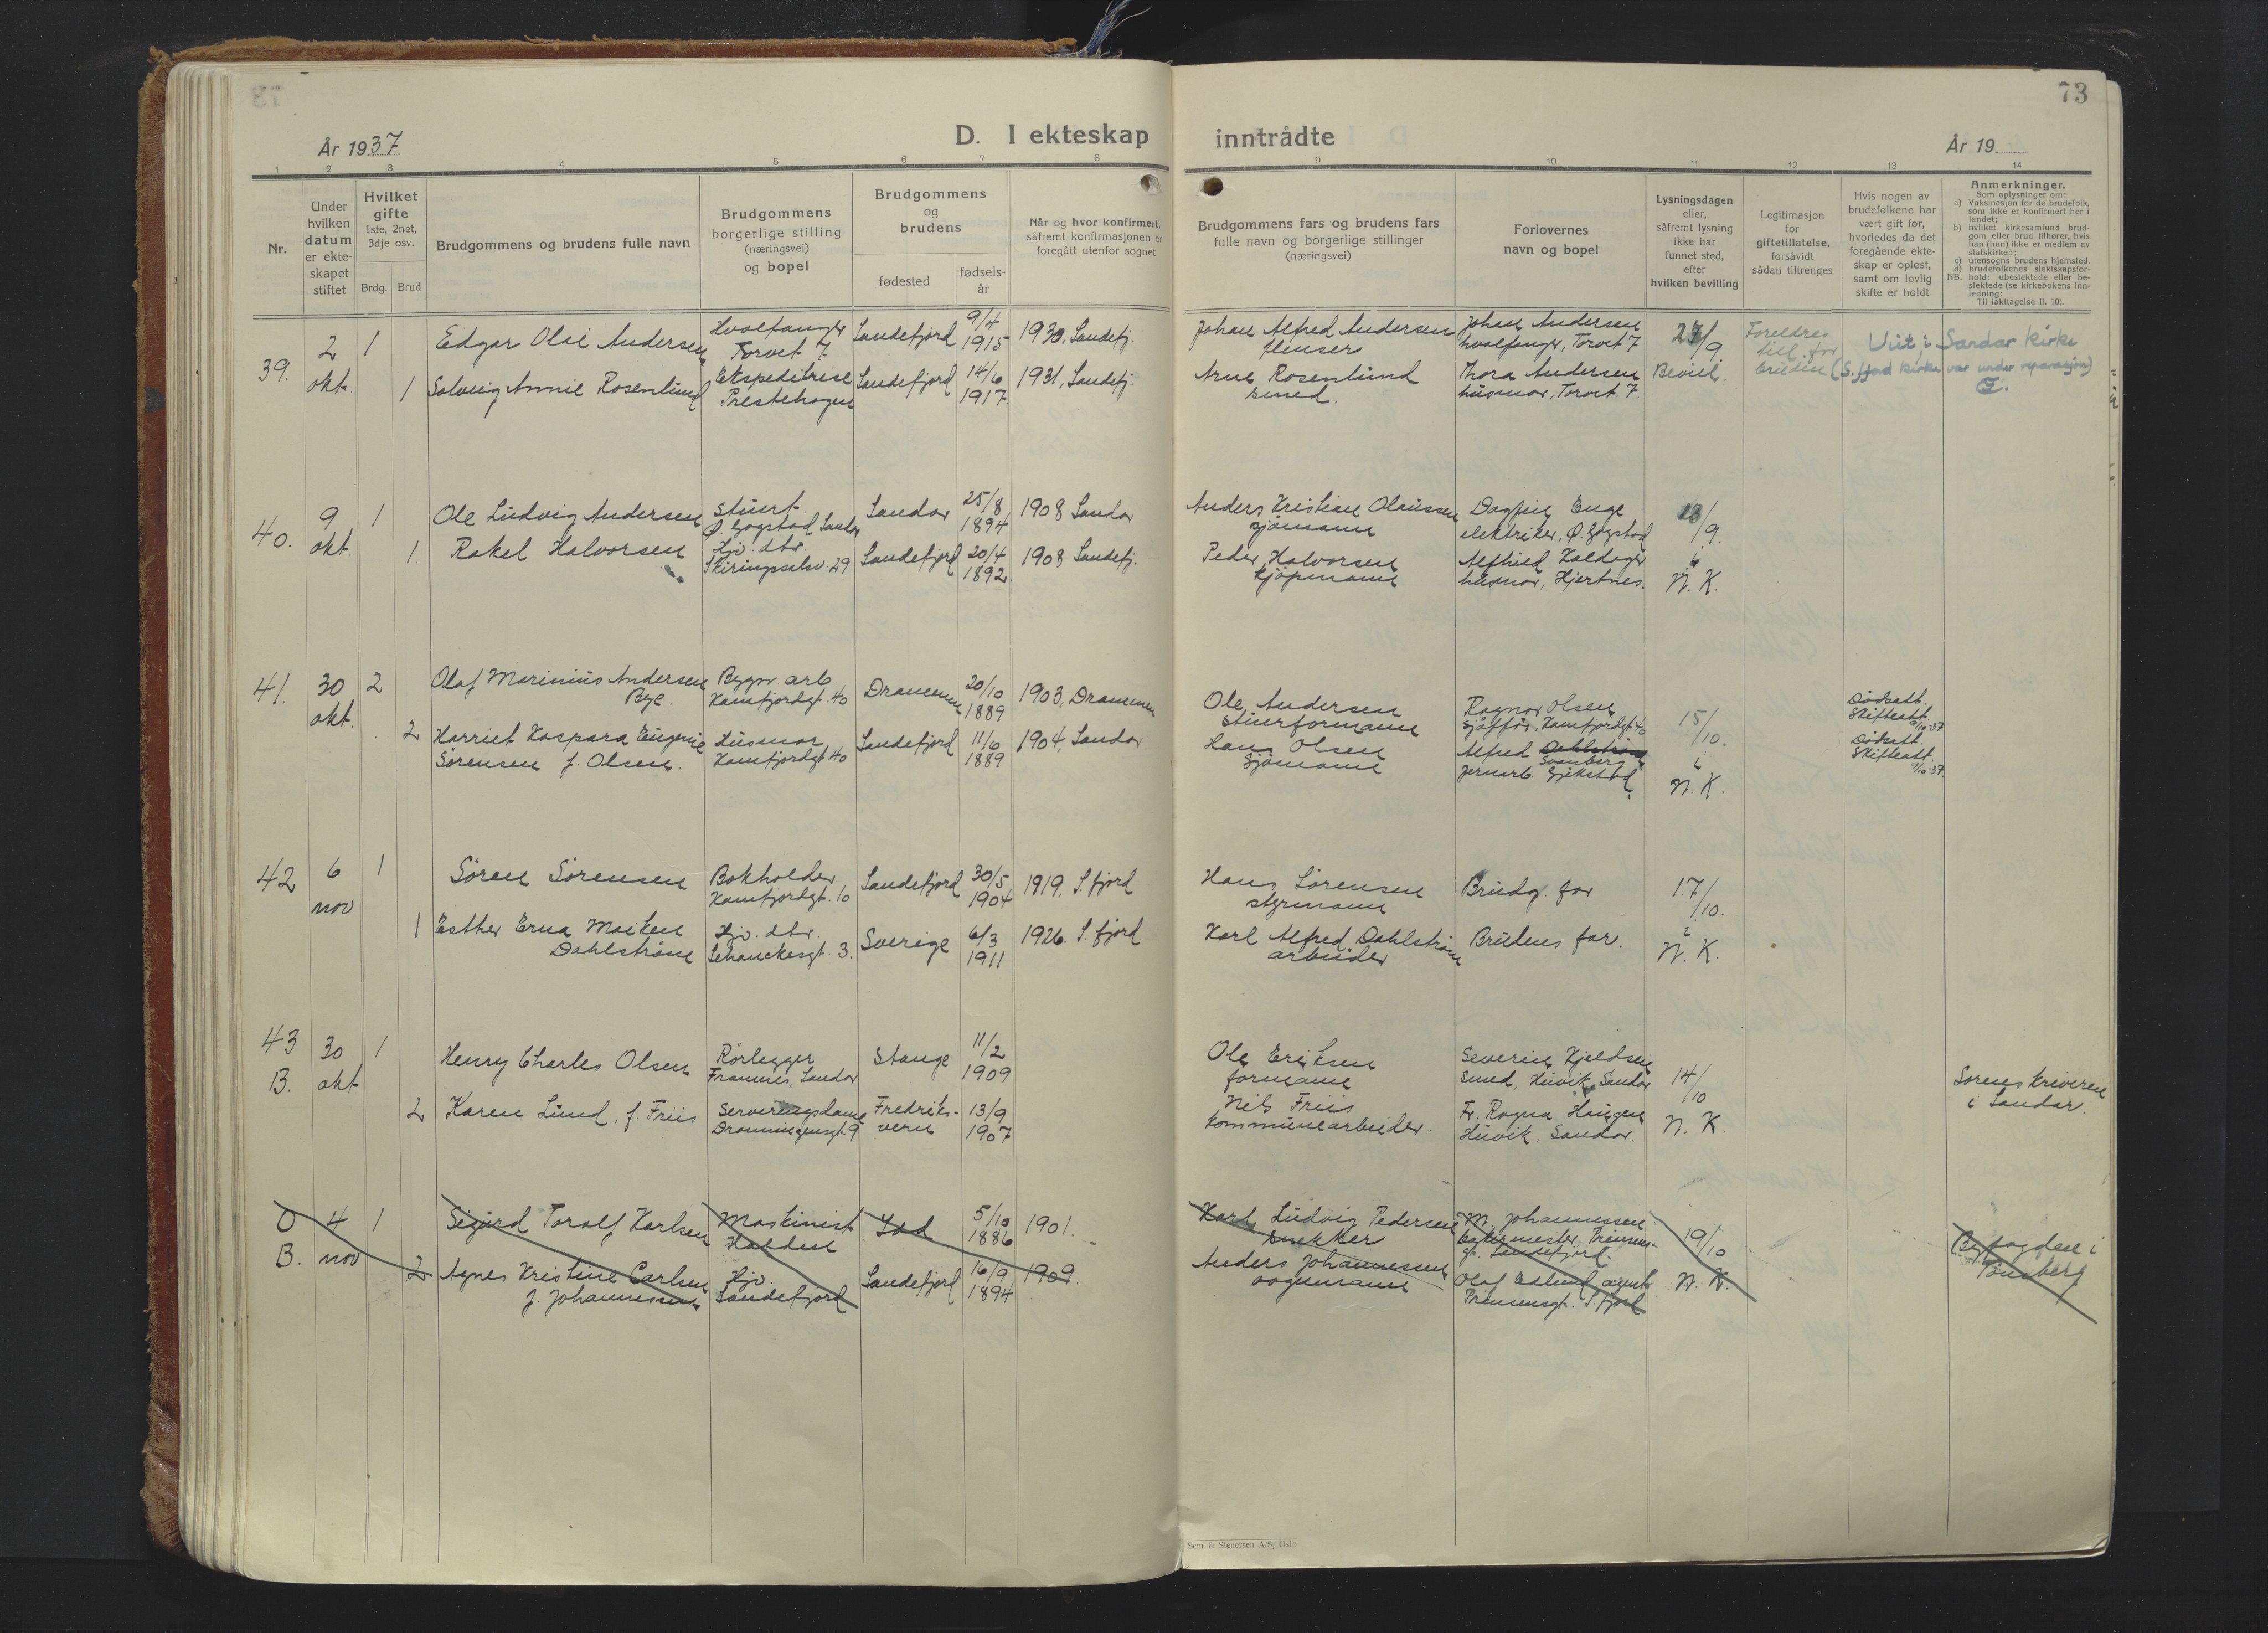 73
År 1937
D. I ekteskap inntrådte
År 19
1 2 3 4 5 6 7 8 9 10 11 12 13 14
Nr.
Under
hvilken
datum
er ekte-
skapet
stiftet
Hvilket
gifte
1ste, 2net,
3dje osv.
Brdg. Brud
Brudgommens og brudens fulle navn
Brudgommens
borgerlige stilling
(næringsvei)
og bopel
Brudgommens
og
brudens
fødested
fødsels-
år
Når og hvor konfirmert,
såfremt konfirmasjonen er
foregått utenfor sognet
Brudgommens fars og brudens fars
fulle navn og borgerlige stillinger
(næringsvei)
Forlovernes
navn og bopel
Lysningsdagen
eller,
såfremt lysning
ikke har
funnet sted,
efter
hvilken bevilling
Legitimasjon
for
giftetillatelse,
forsåvidt
sådan tiltrenges
Hvis nogen av
brudefolkene har
vært gift før,
hvorledes da det
foregående ekte-
skap er opløst,
samt om lovlig
skifte er holdt
Anmerkninger.
Som oplysninger om:
a) Vaksinasjon for de brudefolk,
som ikke er konfirmert her i
landet;
b) hvilket kirkesamfund brud-
gom eller brud tilhører, hvis
han (hun) ikke er medlem av
statskirken;
c) utensogns brudens hjemsted.
d) brudefolkenes slektskapsfor-
hold: ubeslektede eller be-
slektede (se kirkebokens inn-
ledning:
NB.
Til iakttagelse II. 10).
39.
2
okt.
1
Edgar Olai Andersen
Hvalfanger
Torvet 7
Sandefjord
9/4
1915
1930, Sandefj.
Johan Alfred Andersen
flenser
Johan Andersen
hvalfanger, Torvet 7
27/9
Foreldres
till. for
bruden
Viet i Sandar kirke
(S.fjord kirke var under reparasjon)
1
Solveig Annie Rosenlund
Ekspeditrise
Prestehagen
Sandefjord
14/6
1917.
1931, Sandefj.
Arne Rosenlund
smed.
Thora Andersen
husmor, Torvet. 7.
Bevill.
40.
9
okt.
1
Ole Ludvig Andersen
Stuert.
Ø. Gogstad Sandar
Sandar
25/8
1894
1908 Sandar
Anders Kristian Olaussen
sjømann
Dagfin Enge
elektriker, Ø. Gogstad
13/9.
i
N. K.
1.
Rakel Halvorsen
Hjv. dtr
Skiringsselsv. 29
Sandefjord
20/4
1892.
1908 Sandefj.
Peder Halvorsen
kjøpmann
Alfhild Haldager
husmor, Hjertnes.
41.
30
okt.
2
Olaf Marinius Andersen
Bye.
Bygn. arb.
Kamfjordgt. 40
Drammen
20/10
1889
1903, Drammen
Ole Andersen
stuerformann
Ragnar Olsen
sjåffør, Kamfjordgt 40
15/10.
i
N. K.
Dødsatt.
Skifteatt.
9/10-37
2
Harriet Kaspara Eugenie
Sørensen f. Olsen.
Husmor
Kamfjordgt 40
Sandefjord
11/6
1889
1904, Sandar
Hans Olsen
Sjømann
Alfred Dahlstrøm
Svanberg
jernarb. Gjekstad.
Dødsatt.
Skifteatt.
9/10-37.
42
6
nov
1
Søren Sørensen
Bokholder
Kamfjordgt. 10
Sandefjord
30/5
1904
1919, S.fjord
Hans Sørensen
styrmann
Brudg. far
17/10.
i
N. K.
1
Esther Erna Maiken
Dahlstrøm
Hjv. dtr.
Schanckesgt. 3.
Sverige
6/3
1911
1926. S.fjord
Karl Alfred Dahlstrøm
arbeider
Brudens far.
43
B.
30
okt
1
Henry Charles Olsen
Rørlegger
Framnes, Sandar
Stange
11/2
1909
Ole Eriksen
formann
Severin Kjeldsen
smed, Huvik, Sandar
14/10
N. K.
Sorenskriveren
i Sandar.
2
Karen Lund, f. Friis
Serveringsdame
Dronningensgt. 9
Fredriks-
vern
13/9
1907
Nils Friis
kommunearbeider.
Fr. Ragna Haugen
Huvik, Sandar.
O
B.
4
nov
1
Sigurd Toralf Karlsen
Maskinist
Halden
Idd
5/10
1886
1901.
Karl Ludvig Pedersen
snekker
M. Johannessen
bakermester, Prinsens-
gt. Sandefjord.
19/10
N. K.
Byfogden i
Tønsberg
2
Agnes Kristine Carlsen
f. Johannessen
Hjv.
Sandefjord
Sandefjord
16/9
1894
1909.
Anders Johannessen
vognmann
Olaf Edlund, agent
Prinsensgt. S.fjord
Sem & Stenersen A/S, Oslo